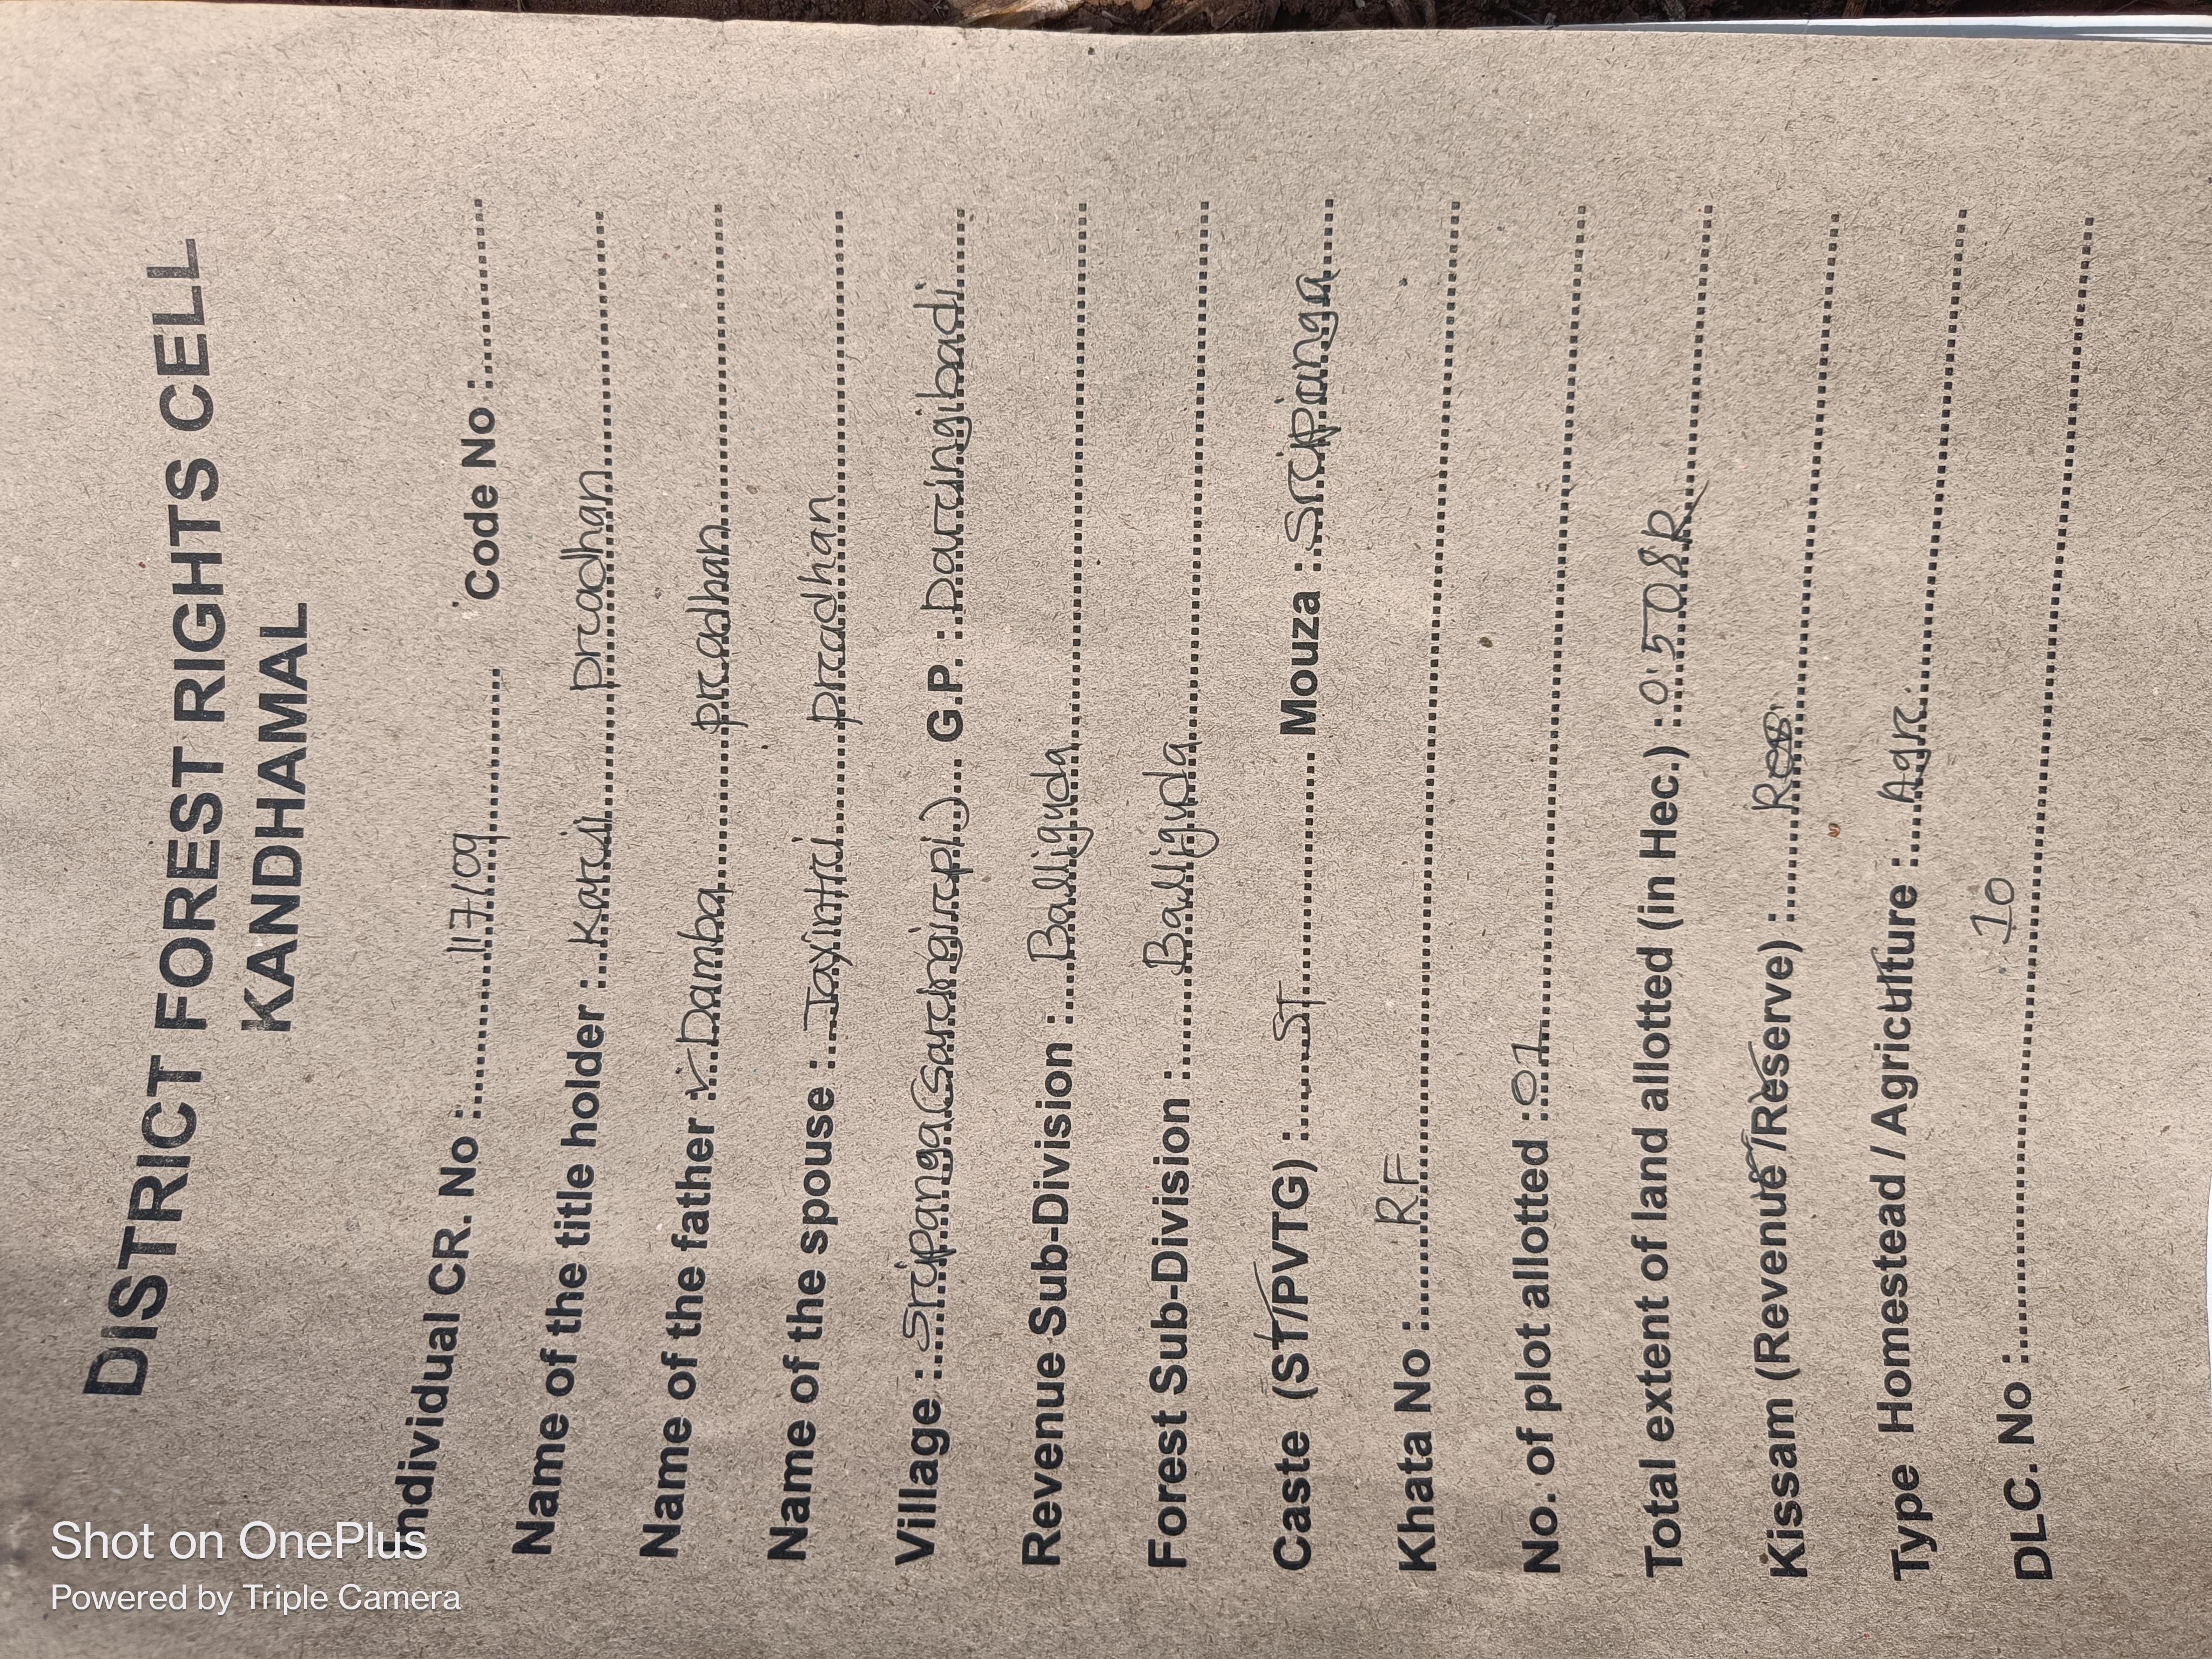 DISTRICT FOREST RIGHTS CELL
KANDHAMAL
Individual CR. No :............117/09............ Code No :............
Name of the title holder :.... Karsi ........ pradhan............
Name of the father :.... Damba ........ pradhan............
Name of the spouse :.... Jayintri ........ pradhan............
Village :.... Sripanga(Sarangirpi).... G.P. : Daringibadi....
Revenue Sub-Division :.... Balliguda............
Forest Sub-Division :........ Balliguda............
Caste (ST/PVTG) :........ ST............ Mouza : Sripanga....
Khata No :........ RF............
No. of plot allotted : 01............
Total extent of land allotted (in Hec.) : 0.508............
Kissam (Revenue/Reserve) :........ Res............
Type Homestead / Agriculture :.... Agr............
DLC. No :............ 10............
Shot on OnePlus
Powered by Triple Camera